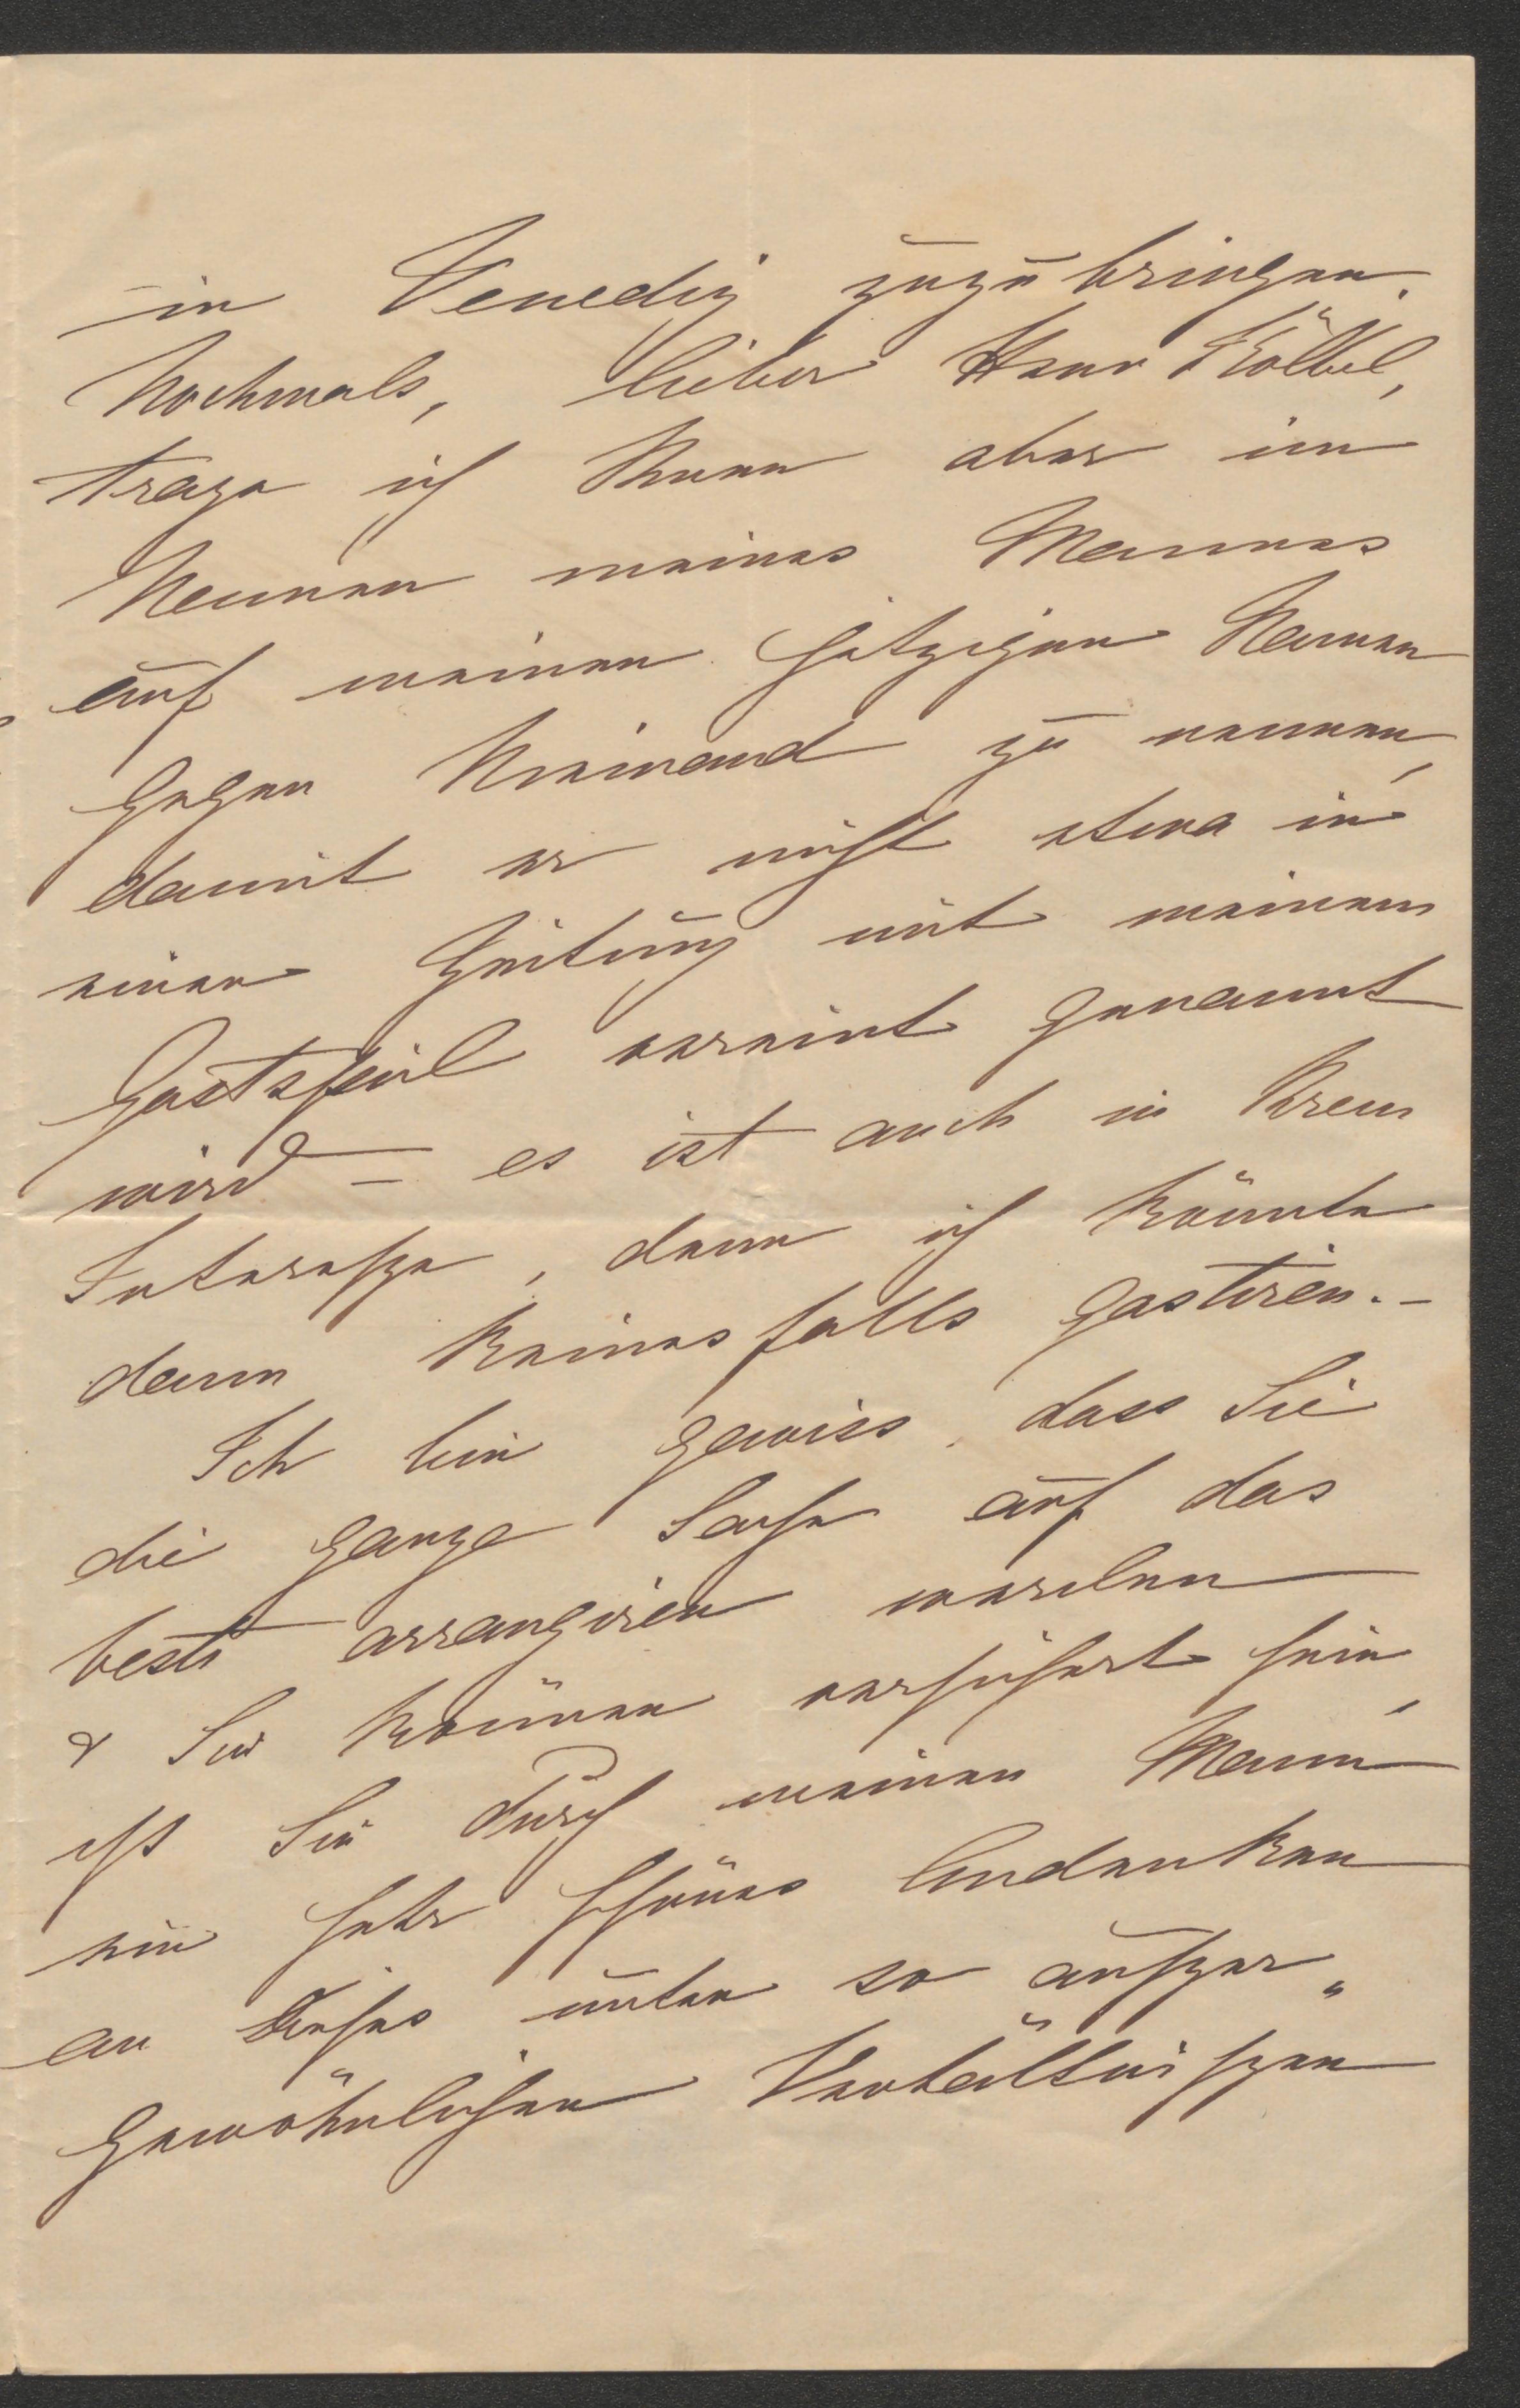 in Venedig zuzubringen.
Nochmals, lieber Herr Kölbel,
trage ich Ihnen aber im
Namen meines Mannes
auf meinen jetzigen Namen
gegen Niemand zu nennen,
damit er nicht etwa in
einer Zeitung mit meinem
Gastspiel vereint genannt
wird – es ist auch in Ihrem
Interesse, denn ich könnte
dann keinesfalls gastiren. –
Ich bin gewiss, dass Sie
die ganze Sache auf das
beste arrangiren werden
& Sie können versichert sein,
ist Sie durch meinen Mann
ein sehr schönes Andenken
an dieses unter so ausser„
gewöhnlichen Verhältnissen